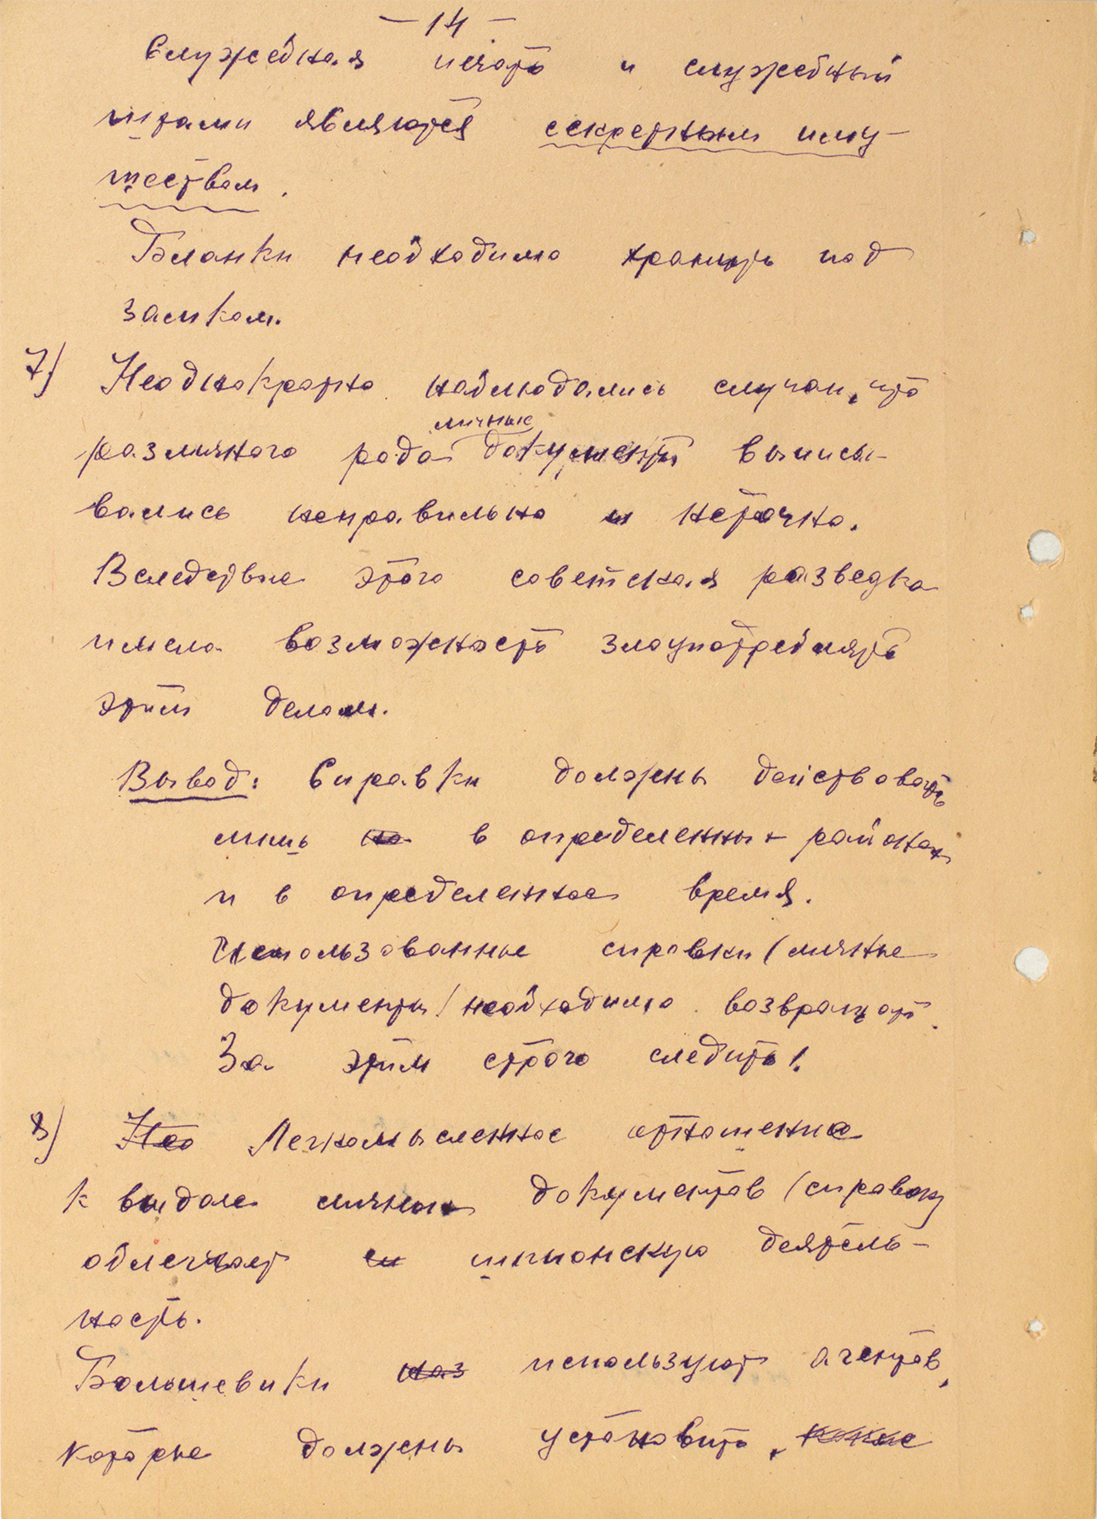 — 14 —
Служебная печать и служебный
штамп являются секретным иму-
ществом.
Бланки необходимо хранить под
замком.
7) Неоднократно наблюдались случаи, что
личные
различного рода документы выписы-
вались неправильно и неточно.
Вследствие этого советская разведка
имела возможность злоупотреблять
этим делом.
Вывод: Справки должны действовать
лишь на в определенных районах
и в определенное время.
Использованные справки (личные
документы) необходимо возвращать.
За этим строго следить!
8) Нео Легкомысленное отношение
к выдаче личных документов (справок)
облегчает шпионскую деятель-
ность.
Большевики наз используют агентов,
которые должны установить, какие